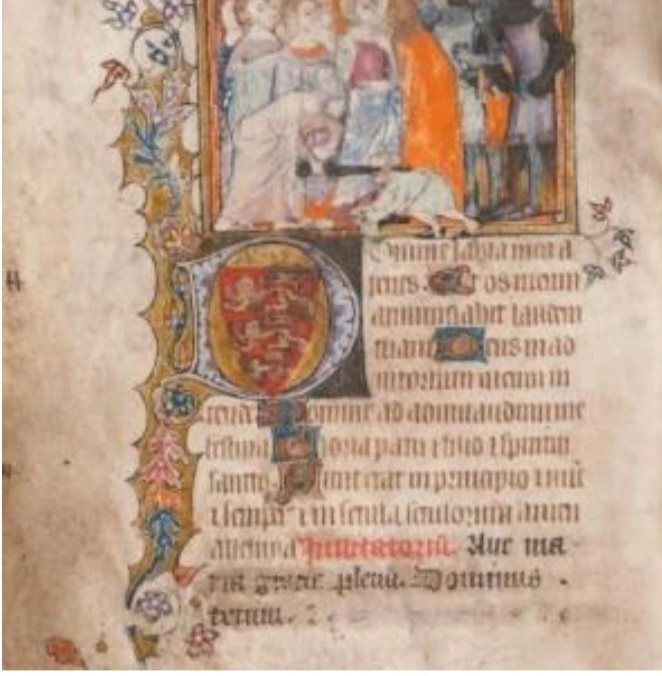 Domine labia mea a
peries. Et os meum
annunciabit laudem
tuam Deus in ad
iutorium meum in
tende Domine ad adiuuandum me
festina Gloria patri ⁊ filio ⁊ spiritui
sancto Sicut erat in principio ⁊ nūc
⁊ semꝑ ⁊ in secula seculorum amen
Aue ma
ria gracia plena. Dominus
tecum.